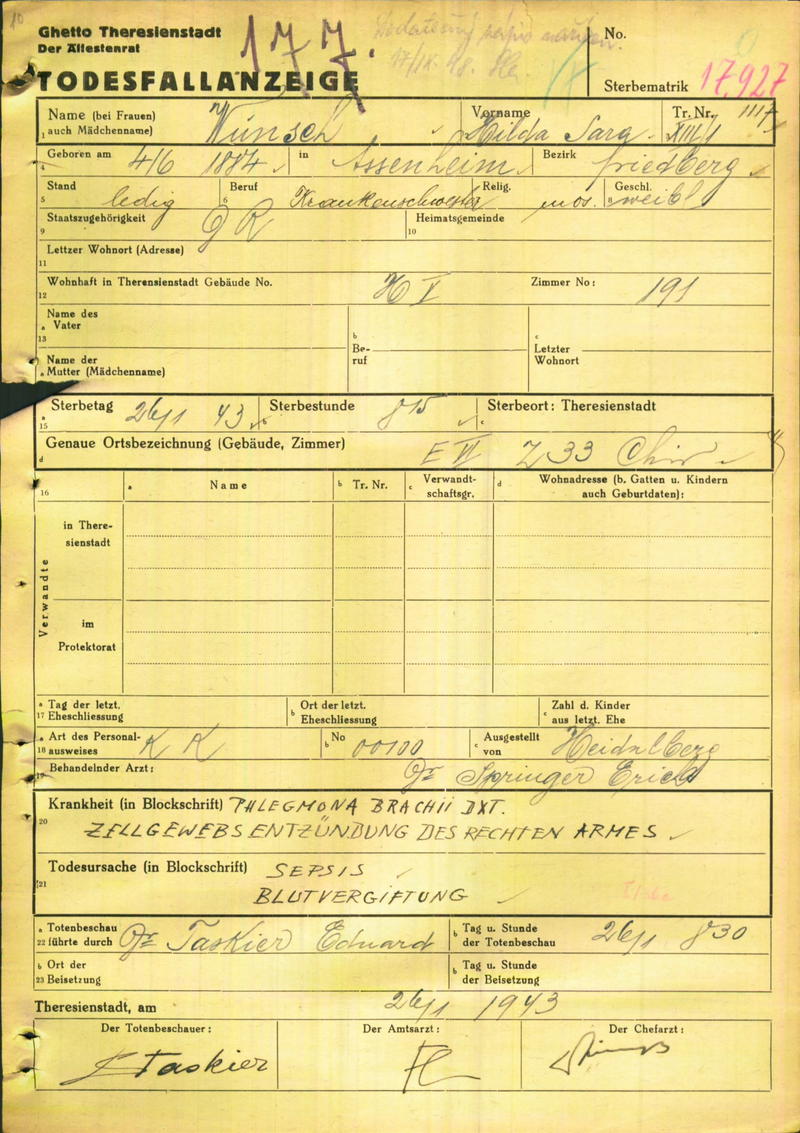 10
Ghetto Theresienstadt
Der Ältestenrat
177.
17/IX. 48.
No.
TODESFALLANZEIGE
Sterbematrik 17.927
Name (bei Frauen) Wünsch Vorname Hilda Sara Tr. Nr. 1117
1 auch Mädchenname) XIII/1
Geboren am 4/6 1884 in Assenheim Bezirk Friedberg
4
Stand ledig Beruf Krankenschwester Relig. mos. Geschl. weibl
5 6 8
Staatszugehörigkeit DR Heimatsgemeinde
9 10
Lettzer Wohnort (Adresse)
11
Wohnhaft in Therensienstadt Gebäude No. H V Zimmer No: 191
12
Name des
a Vater
13
b Be-
ruf
c Letzter
Wohnort
Name der
a Mutter (Mädchenname)
Sterbetag 26/1 43 Sterbestunde 815 Sterbeort: Theresienstadt
a 15 b c
Genaue Ortsbezeichnung (Gebäude, Zimmer) E VI Z 33 Chir
d
16 a Name b Tr. Nr. c Verwandt-
schaftsgr. d Wohnadresse (b. Gatten u. Kindern
auch Geburtdaten):
Verwandte
in There-
sienstadt
im
Protektorat
a Tag der letzt.
17 Eheschliessung
b Ort der letzt.
Eheschliessung
c Zahl d. Kinder
aus letzt. Ehe
a Art des Personal-
18 ausweises K K
b No 00100
c Ausgestellt
von Heidelberg
19 Behandelnder Arzt: Dr Springer Erich
Krankheit (in Blockschrift) PHLEGMONA BRACHII DXT.
20 ZELLGEWEBSENTZÜNDUNG DES RECHTEN ARMES
Todesursache (in Blockschrift) SEPSIS
21 BLUTVERGIFTUNG
a Totenbeschau
22 führte durch Dr Taskier Eduard
b Tag u. Stunde
der Totenbeschau 26/1 830
b Ort der
23 Beisetzung
b Tag u. Stunde
der Beisetzung
Theresienstadt, am 26/1 1943
Der Totenbeschauer: Der Amtsarzt: Der Chefarzt:
Taskier